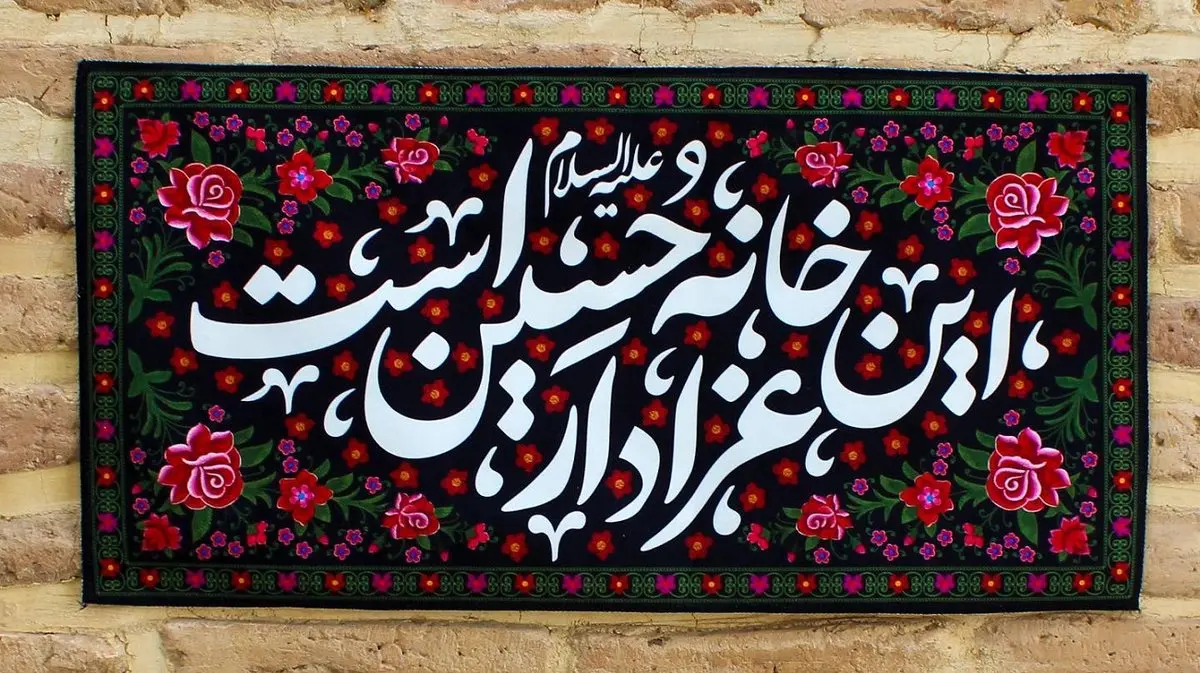 این خانه عزادار حسین علیه السلام است